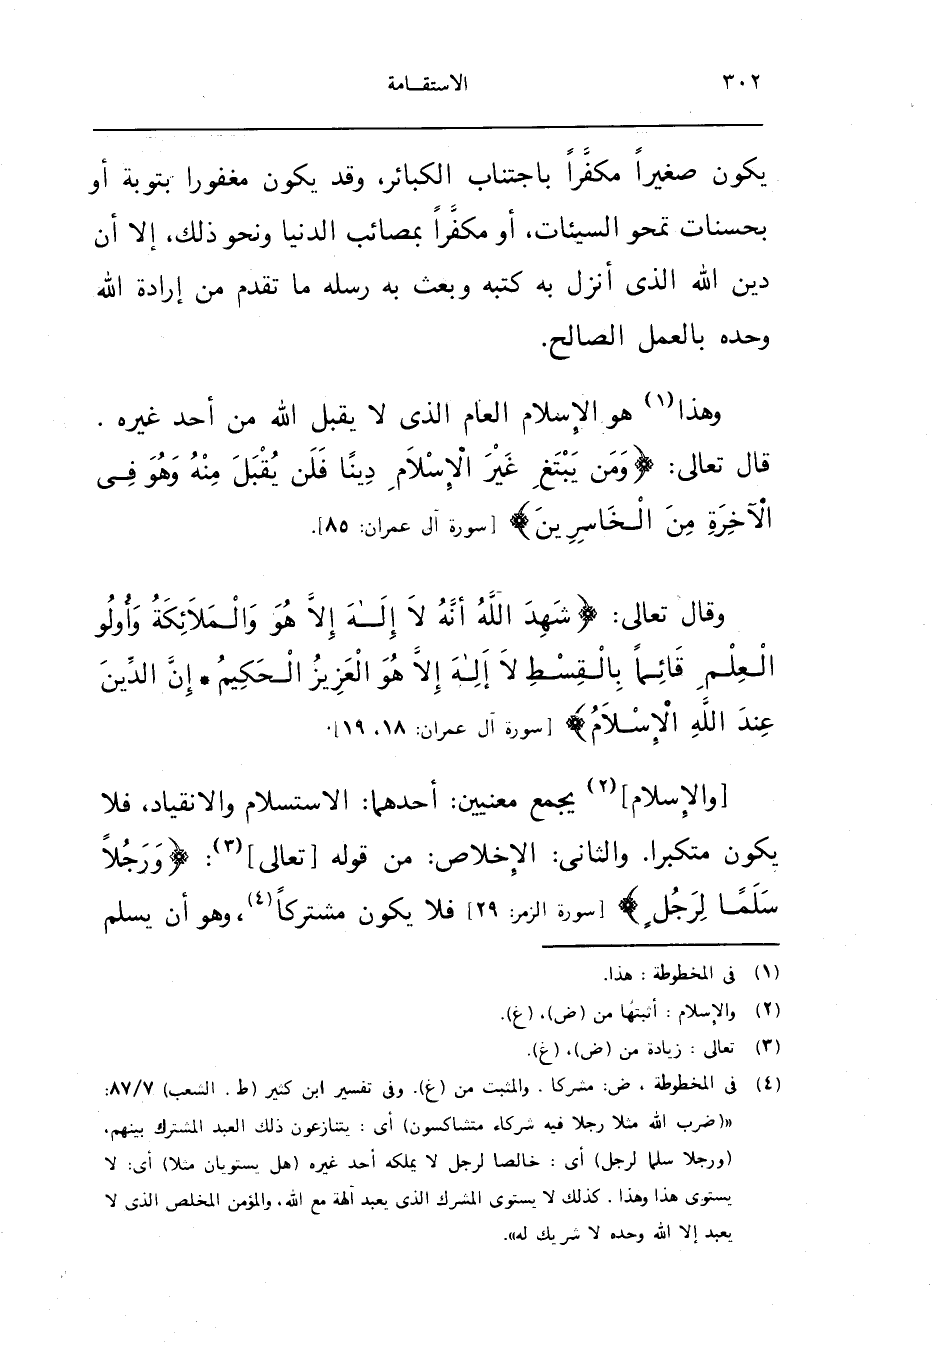 ٣٠٢
الاستقـامة
يكون صغيراً مكفَّراً باجتناب الكبائر، وقد يكون مغفورا بتوبة أو
بحسنات تمحو السيئات، أو مكفَّراً بمصائب الدنيا ونحو ذلك، إلا أن
دين الله الذى أنزل به كتبه وبعث به رسله ما تقدم من إرادة الله
وحده بالعمل الصالح.
وهذا(١) هو الإسلام العام الذى لا يقبل الله من أحد غيره .
قال تعالى: ﴿وَمَن يَبْتَغِ غَيْرَ الْإِسْلَامِ دِينًا فَلَن يُقْبَلَ مِنْهُ وَهُوَ فِـى
الْآخِرَةِ مِنَ الْـخَاسِرِينَ﴾ [سورة آل عمران: ٨٥].
وقال تعالى: ﴿شَهِدَ اللَّهُ أَنَّهُ لاَ إِلَـٰهَ إِلاَّ هُوَ وَالْـمَلاَئِكَةُ وَأُولُو
الْـعِلْـمِ قَائِـماً بِالْـقِسْـطِ لاَ إِلَـٰهَ إِلاَّ هُوَ الْعَزِيزُ الْـحَكِيمُ * إِنَّ الدِّينَ
عِندَ اللَّهِ الْإِسْـلاَمُ﴾ [سورة آل عمران: ١٨، ١٩].
[والإسلام](٢) يجمع معنيين: أحدهما: الاستسلام والانقياد، فلا
يكون متكبرا. والثانى: الإخلاص: من قوله [تعالى](٣): ﴿وَرَجُلاً
سَلَمًـا لِرَجُلٍ﴾ [سورة الزمر: ٢٩] فلا يكون مشتركاً(٤)، وهو أن يسلم
(١) فى المخطوطة : هذا.
(٢) والإسلام : أثبتها من (ض)، (غ).
(٣) تعالى : زيادة من (ض)، (غ).
(٤) فى المخطوطة ، ض: مشركا . والمثبت من (غ). وفى تفسير ابن كثير (ط . الشعب) ٨٧/٧:
«(ضرب الله مثلا رجلا فيه شركاء متشاكسون) أى : يتنازعون ذلك العبد المشترك بينهم،
(ورجلا سلما لرجل) أى : خالصا لرجل لا يملكه أحد غيره (هل يستويان مثلا) أى: لا
يستوى هذا وهذا . كذلك لا يستوى المشرك الذى يعبد آلهة مع الله، والمؤمن المخلص الذى لا
يعبد إلا الله وحده لا شريك له».